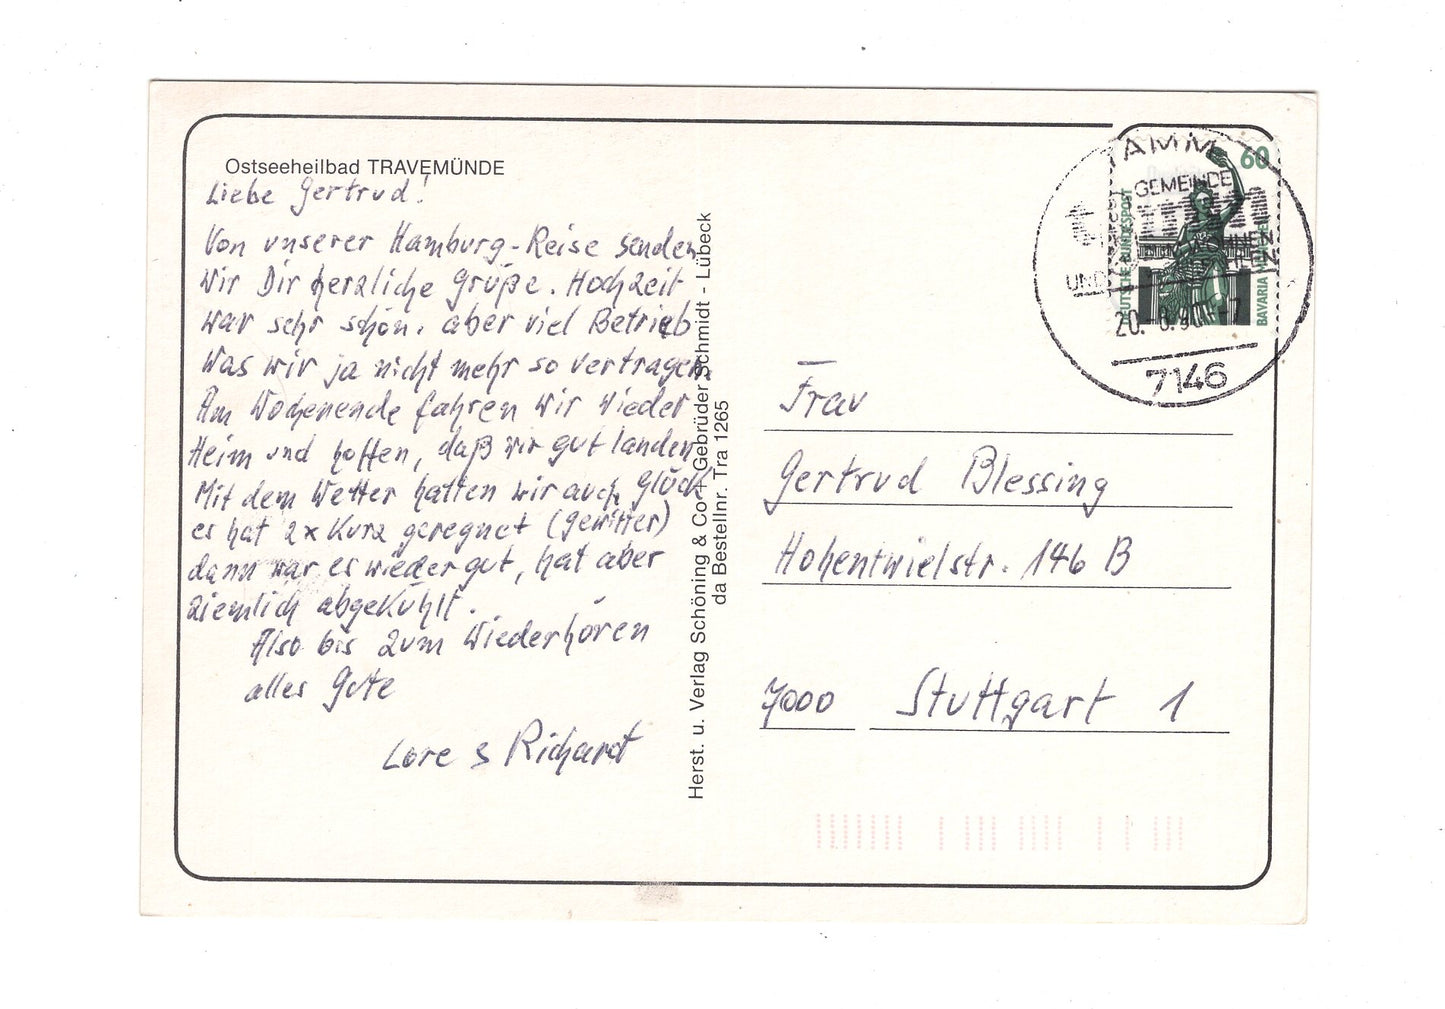 Ostseeheilbad TRAVEMÜNDE
Liebe Gertrud!
Von unserer Hamburg-Reise senden
wir Dir herzliche Grüße. Hochzeit
war sehr schön. aber viel Betrieb
Was wir ja nicht mehr so vertragen.
Am Wochenende fahren wir wieder
Heim und hoffen, daß wir gut landen
Mit dem Wetter hatten wir auch Glück
es hat 2x Kurz geregnet (Gewitter)
dann war es wieder gut, hat aber
ziemlich abgekühlt.
Also bis zum Wiederhören
alles Gute
Lore & Richard
Herst. u. Verlag Schöning & Co + Gebrüder Schmidt - Lübeck
da Bestellnr. Tra 1265
TAMM
GEMEINDE
UND
7146
60
DEUTSCHE BUNDESPOST
BAVARIA MÜNCHEN
Frau
Gertrud Blessing
Hohentwielstr. 146 B
7000 Stuttgart 1